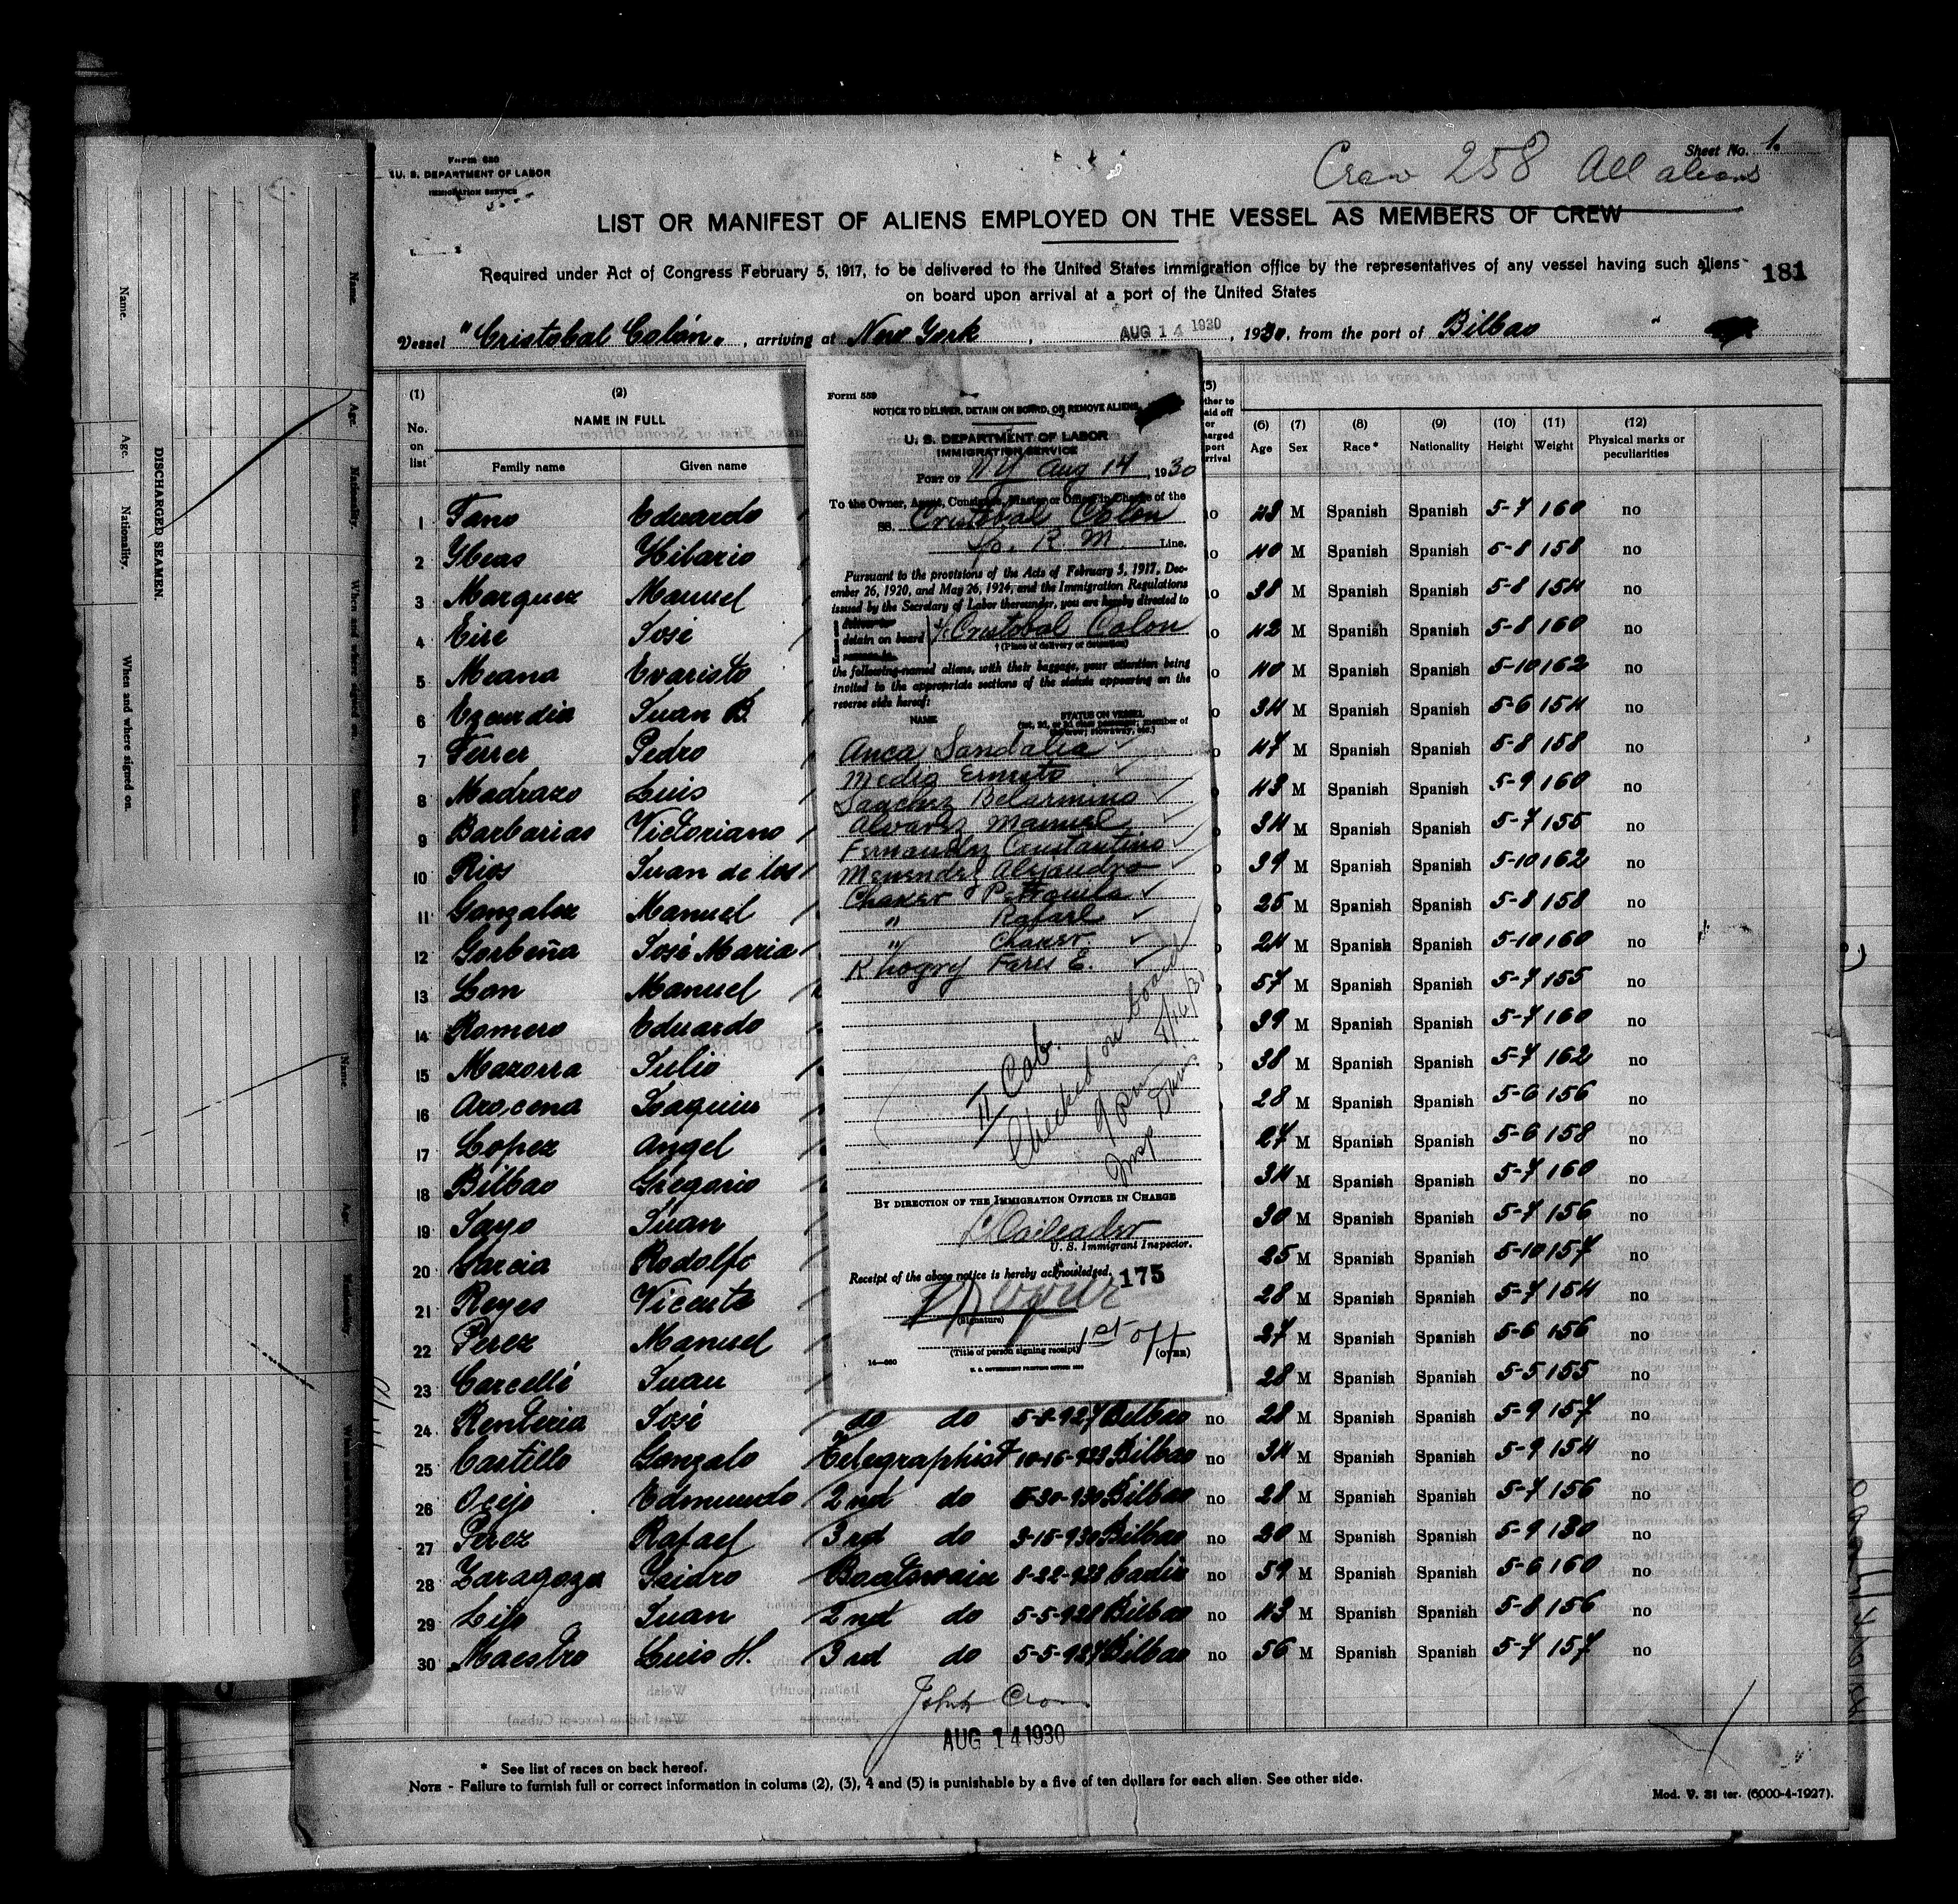 Form 680
U. S. DEPARTMENT OF LABOR
IMMIGRATION SERVICE
Sheet No. 1.
Crew 258 All aliens
LIST OR MANIFEST OF ALIENS EMPLOYED ON THE VESSEL AS MEMBERS OF CREW
Required under Act of Congress February 5, 1917, to be delivered to the United States immigration office by the representatives of any vessel having such aliens
on board upon arrival at a port of the United States
181
Vessel "Cristobal Colón", arriving at New York, AUG 14 1930, 1930, from the port of Bilbao
(1) (2) (5) (6) (7) (8) (9) (10) (11) (12)
No. on list NAME IN FULL Age Sex Race* Nationality Height Weight Physical marks or peculiarities
Family name Given name
1 Tano Eduardo 43 M Spanish Spanish 5-7 160 no
2 Ybeas Hilario 40 M Spanish Spanish 5-8 158 no
3 Marquez Manuel 38 M Spanish Spanish 5-8 154 no
4 Eire José 42 M Spanish Spanish 5-8 160 no
5 Meana Evaristo 40 M Spanish Spanish 5-10 162 no
6 Ezcurdia Juan B. 34 M Spanish Spanish 5-6 154 no
7 Ferrer Pedro 47 M Spanish Spanish 5-8 158 no
8 Madrazo Luis 43 M Spanish Spanish 5-9 160 no
9 Barbarias Victoriano 34 M Spanish Spanish 5-7 155 no
10 Rios Juan de los 39 M Spanish Spanish 5-10 162 no
11 Gonzalez Manuel 25 M Spanish Spanish 5-8 158 no
12 Gorbeña José Maria 24 M Spanish Spanish 5-10 160 no
13 Lan Manuel 57 M Spanish Spanish 5-7 155 no
14 Romero Eduardo 39 M Spanish Spanish 5-7 160 no
15 Mazorra Julio 38 M Spanish Spanish 5-7 162 no
16 Arocena Joaquin 28 M Spanish Spanish 5-6 156 no
17 Lopez Angel 27 M Spanish Spanish 5-6 158 no
18 Bilbao Gregorio 34 M Spanish Spanish 5-7 160 no
19 Sayo Juan 30 M Spanish Spanish 5-7 156 no
20 Garcia Rodolfo 25 M Spanish Spanish 5-10 157 no
21 Reyes Vicente 28 M Spanish Spanish 5-7 154 no
22 Perez Manuel 27 M Spanish Spanish 5-6 156 no
23 Carcellé Juan 28 M Spanish Spanish 5-5 155 no
24 Renteria José do do 5-8-927 Bilbao no 28 M Spanish Spanish 5-9 157 no
25 Castillo Gonzalo Telegraphist 10-16-928 Bilbao no 34 M Spanish Spanish 5-9 154 no
26 Ocejo Edmundo 2nd do 5-30-930 Bilbao no 28 M Spanish Spanish 5-7 156 no
27 Perez Rafael 3rd do 3-15-930 Bilbao no 20 M Spanish Spanish 5-9 130 no
28 Zaragoza Ysidro 8-22-928 Cadiz no 59 M Spanish Spanish 5-6 160 no
29 Lijo Juan 2nd do 5-5-928 Bilbao no 43 M Spanish Spanish 5-8 156 no
30 Maestro Luis H. 3rd do 5-5-927 Bilbao no 56 M Spanish Spanish 5-7 157 no
AUG 14 1930
* See list of races on back hereof.
NOTE - Failure to furnish full or correct information in colums (2), (3), 4 and (5) is punishable by a five of ten dollars for each alien. See other side.
Mod. V. 31 ter. (6000-4-1927).
Form 559
NOTICE TO DELIVER, DETAIN ON BOARD, OR REMOVE ALIENS
U. S. DEPARTMENT OF LABOR
IMMIGRATION SERVICE
PORT OF N Y Aug 14, 1930
To the Owner, Agent, Consignee, Master or Officer in Charge of the
SS. Cristobal Colon
Line.
Pursuant to the provisions of the Acts of February 5, 1917, Dec-
ember 26, 1920, and May 26, 1924, and the Immigration Regulations
issued by the Secretary of Labor thereunder, you are hereby directed to
detain on board Cristobal Colon
† (Place of delivery or detention)
the following-named aliens, with their baggage, your attention being
invited to the appropriate sections of the statute appearing on the
reverse side hereof:
NAME STATUS ON VESSEL
Anca Sandalia
Media Ernesto
Sanchez Belarmino
Alvarez Manuel
Fernandez Constantino
Menendez Alejandro
Chaker Petronila
" Rafael
" Chaker
Khogry Fares E.
II Cab.
Checked on board
BY DIRECTION OF THE IMMIGRATION OFFICER IN CHARGE
U. S. Immigrant Inspector.
Receipt of the above notice is hereby acknowledged. 175
(Signature)
1st Off
(Title of person signing receipt)
(OVER)
U. S. GOVERNMENT PRINTING OFFICE
DISCHARGED SEAMEN.
Name. Age. Nationality. When and where signed on.